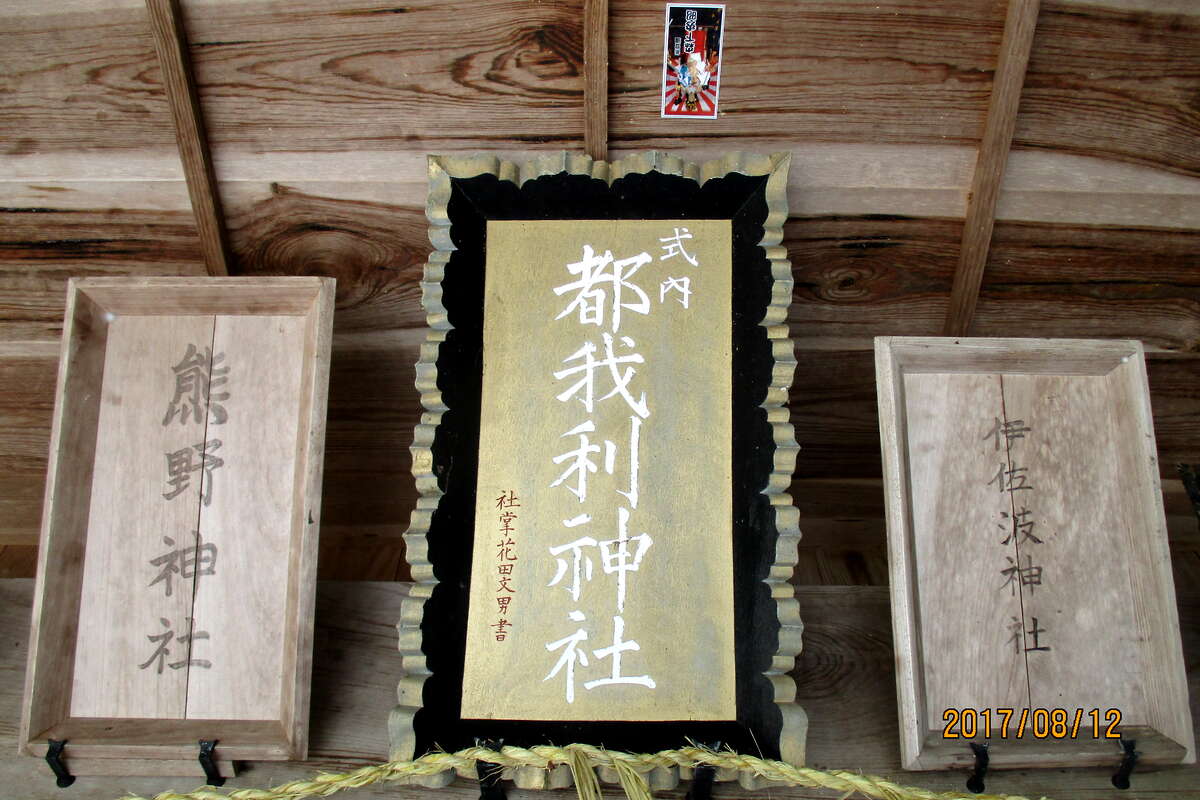 熊野神社
式内
都我利神社
社掌花田文男書
伊佐波神社
2017/08/12